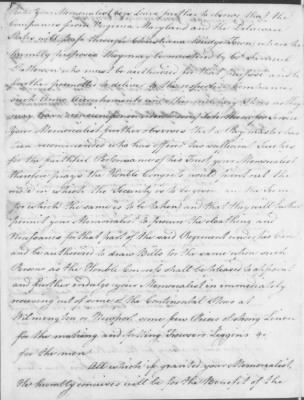 That Your Memorialist begs Leave further to observe that the
Companies from Virginia Maryland and the Delaware
State, will pass through Christiana Bridge Town, where he
humbly proposes they may be mustered by
Person who must be authorized for that Purpose and
further to deliver to the respective Companies
such Arms Accoutrements and other necessary Stores as they
may have
Your Memorialist further observes that a Paymaster has
been recommended who has offered two sufficient Sureties
for the faithful Performance of his Trust, your Memorialist
therefore prays the Honble Congress would point out the
mode in which the Security is to be given and the Sum
for which the same is to be taken, and that they will further
permit your Memorialist to procure the cloathing and
Necessaries for that part of the said Regiment under his Care
and be authorized to draw Bills for the same upon such
Persons as the Honble Congress shall be pleased to appoint
and further indulge your Memorialist in immediately
receiving out of some of the Continental Stores at
Wilmington or Newport some few Pieces of strong Linen
for the making and fitting Trowsers Leggins &c
for the men
All which if granted your Memorialist,
He humbly conceives will be for the Benefit of the